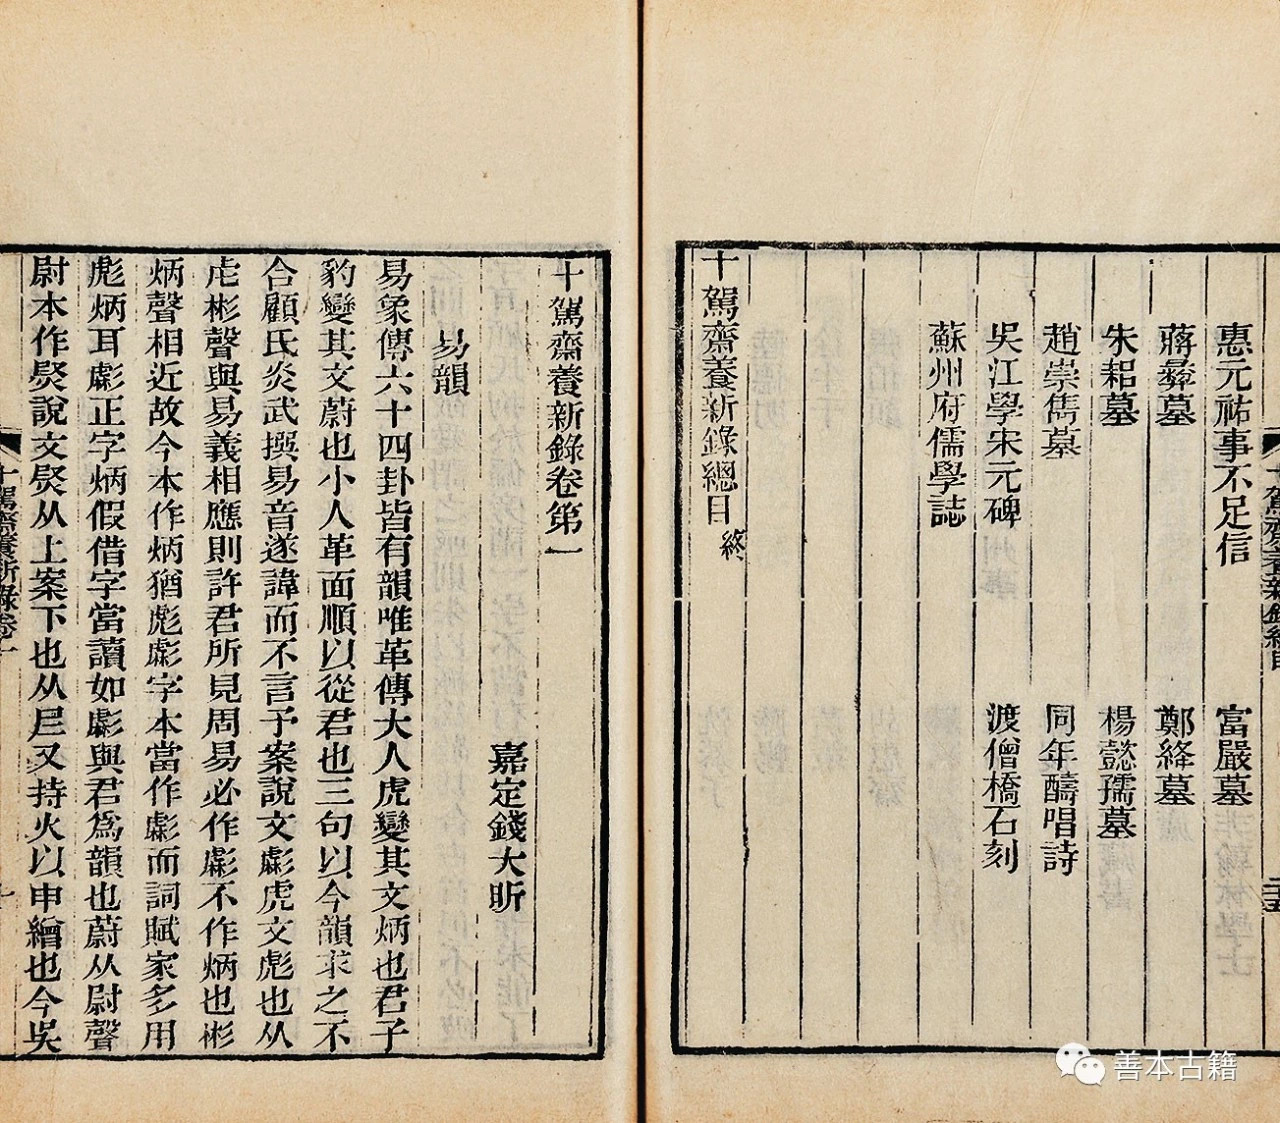 十駕齋養新錄總目
惠元祐事不足信 富嚴墓
蔣彝墓 鄭絳墓
朱耜墓 楊懿孺墓
趙崇雋墓 同年醻唱詩
吳江學宋元碑 渡僧橋石刻
蘇州府儒學誌
十駕齋養新錄總目終
十駕齋養新錄卷第一
嘉定錢大昕
易韻
易象傳六十四卦皆有韻唯革傳大人虎變其文炳也君子
豹變其文蔚也小人革面順以從君也三句以今韻求之不
合顧氏炎武撰易音遂諱而不言予案說文虨虎文彪也从
虍彬聲與易義相應則許君所見周易必作虨不作炳也彬
炳聲相近故今本作炳猶彪虨字本當作虨而詞賦家多用
彪炳耳虨正字炳假借字當讀如虨與君爲韻也蔚从尉聲
尉本作㷉說文㷉从上案下也从𡰥又持火以申繒也今吳
十駕齋養新錄卷一
善本古籍